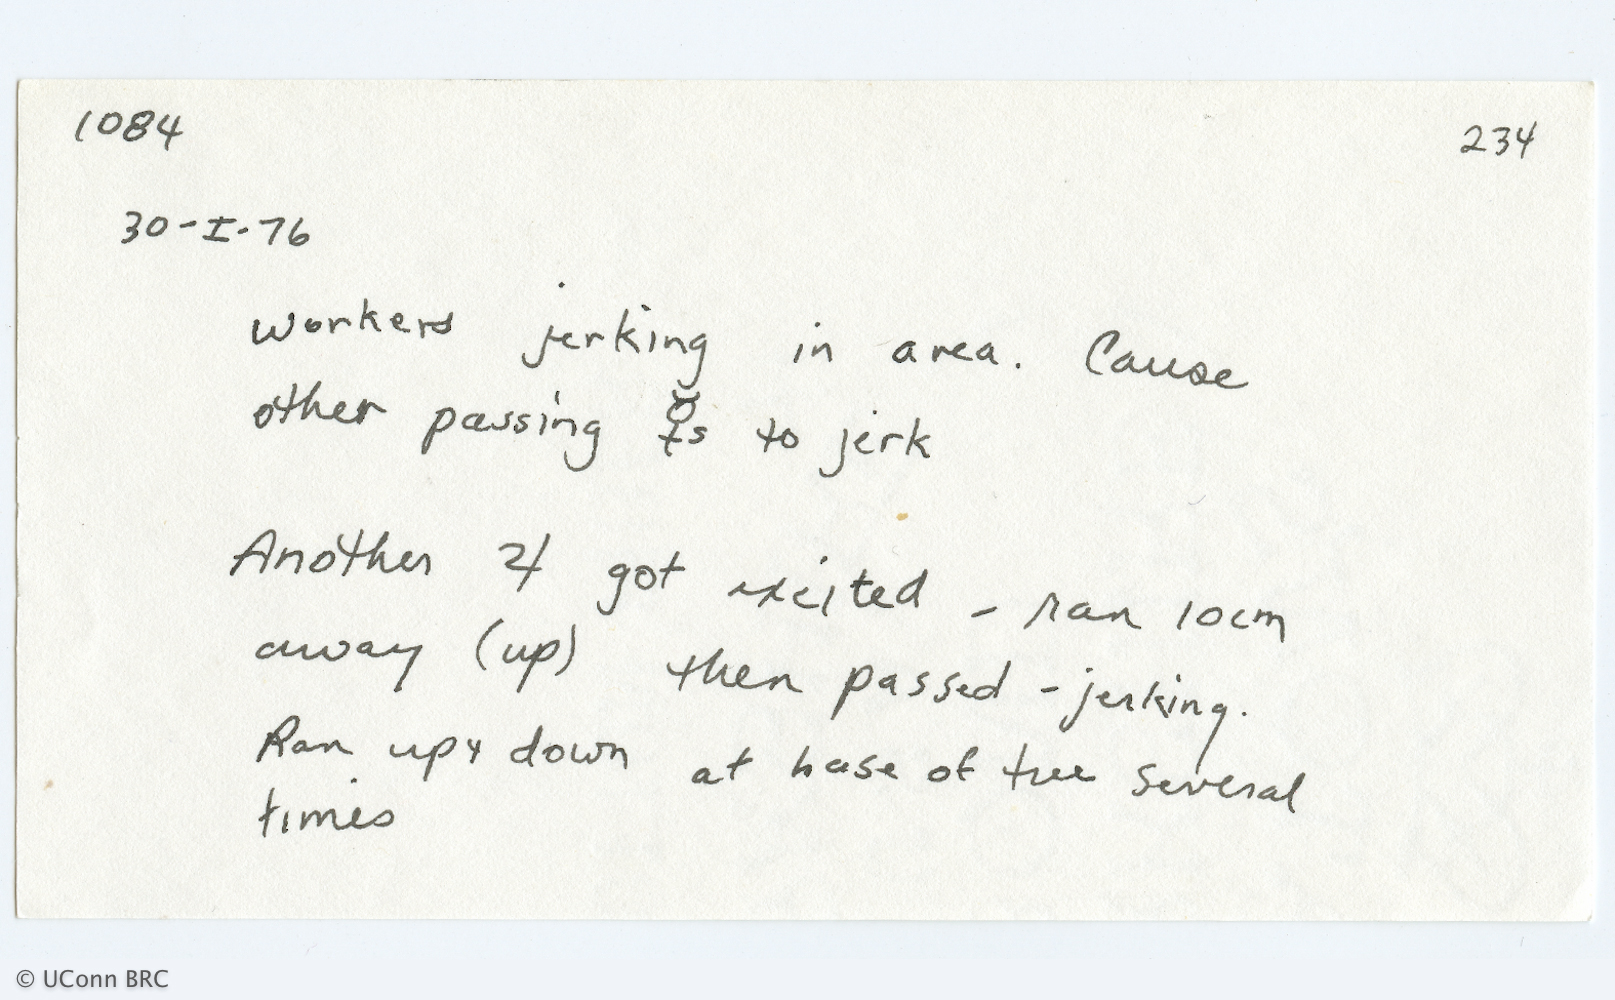 1084
234
30-I-76
workers jerking in area. Cause
other passing ☿s to jerk
Another ♃ got excited - ran 10cm
away (up) then passed - jerking.
Ran up & down at base of tree several
times
© UConn BRC